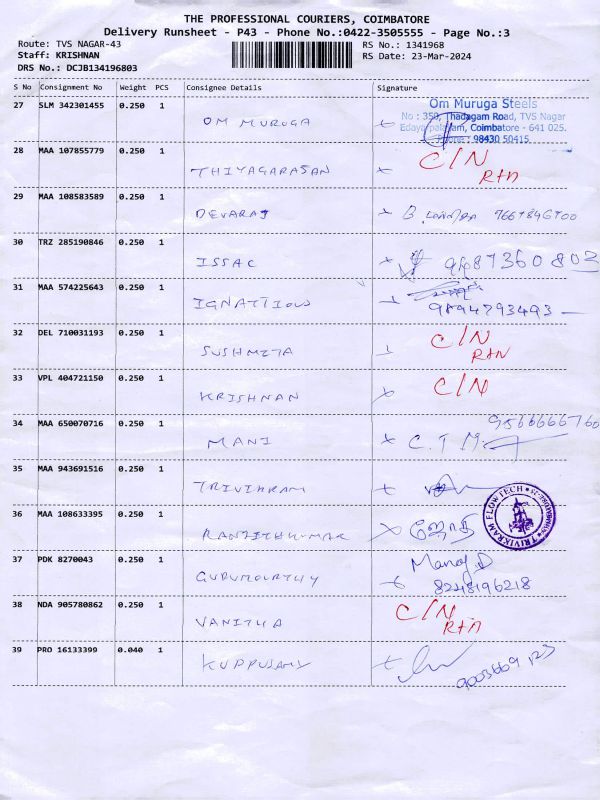 THE PROFESSIONAL COURIERS, COIMBATORE
Delivery Runsheet - P43 - Phone No.:0422-3505555 - Page No.:3
Route: TVS NAGAR-43 RS No.: 1341968
Staff: KRISHNAN RS Date: 23-Mar-2024
DRS No.: DCJB134196803
S No Consignment No Weight PCS Consignee Details Signature
27 SLM 342301455 0.250 1 OM MURUGA
Om Muruga Steels
No : 350, Thadagam Road, TVS Nagar
Edayarpalayam, Coimbatore - 641 025.
Phone : 98430 50415
28 MAA 107855779 0.250 1 THIYAGARASAN C/N
Rtn
29 MAA 108583589 0.250 1 DEVARAJ B
30 TRZ 285190846 0.250 1 ISSAC
31 MAA 574225643 0.250 1 IGNATTIOUS
9894793493
32 DEL 710031193 0.250 1 SUSHMITA C/N
RtN
33 VPL 404721150 0.250 1 KRISHNAN C/N
34 MAA 650070716 0.250 1 MANI 9566666760
C. T M
35 MAA 943691516 0.250 1 TRIVIKRAM
TRIVIKRAM FLOW TECH
36 MAA 108633395 0.250 1 RANJITHKUMAR ஜோதி
37 PDK 8270043 0.250 1 GURUMOURTHY Manoj D
8248196218
38 NDA 905780862 0.250 1 VANITHA C/N
Rtn
39 PRO 16133399 0.040 1 KUPPUSAMY
9003669123